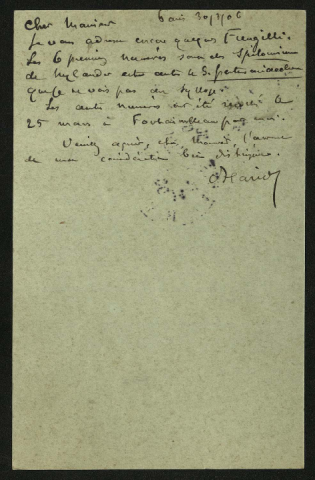 Cher Monsieur Paris 30/3/06
Je vous adresse encore quelques Fungilli.
Les 6 premiers numéros sont des
de Nylander entre autre le
que je ne vois pas au Sylloge
Les autres numéros ont été le
25 mars à Fontainebleau par moi.
Veuillez agréer, cher Monsieur, l'assurance
de ma considération bien distinguée.